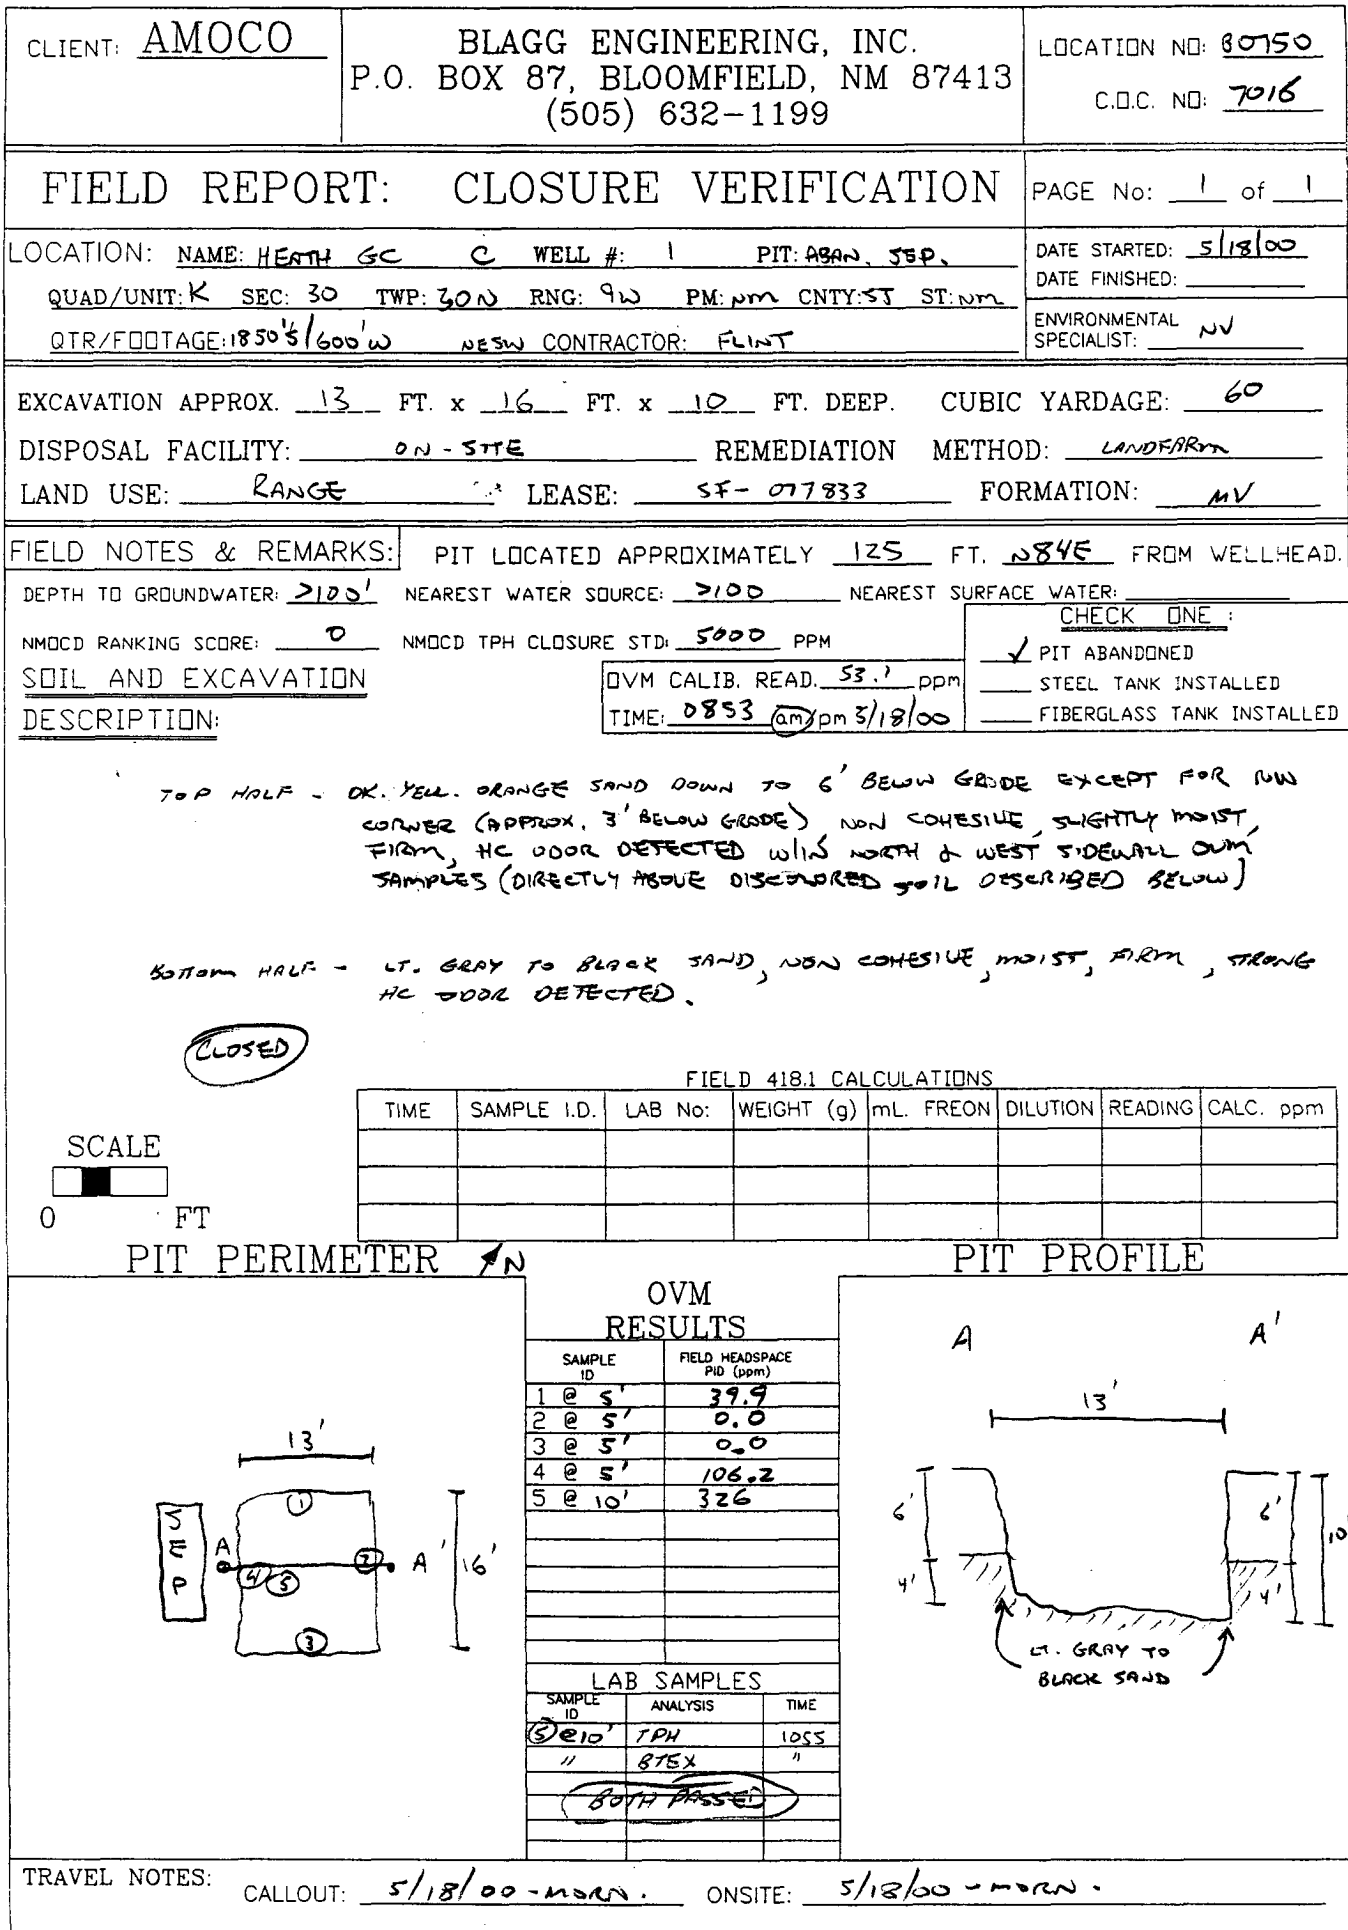 CLIENT: AMOCO
BLAGG ENGINEERING, INC.
P.O. BOX 87, BLOOMFIELD, NM 87413
(505) 632-1199
LOCATION NO: 80750
C.O.C. NO: 7016
FIELD REPORT: CLOSURE VERIFICATION
PAGE No: 1 of 1
LOCATION: NAME: HEATH GC C WELL #: 1 PIT: ABAN. SEP.
QUAD/UNIT: K SEC: 30 TWP: 30N RNG: 9W PM: NM CNTY: SJ ST: NM
QTR/FOOTAGE: 1850'S/1600'W NESW CONTRACTOR: FLINT
DATE STARTED: 5/18/00
DATE FINISHED:
ENVIRONMENTAL
SPECIALIST: NV
EXCAVATION APPROX. 13 FT. x 16 FT. x 10 FT. DEEP. CUBIC YARDAGE: 60
DISPOSAL FACILITY: ON-SITE REMEDIATION METHOD: LANDFARM
LAND USE: RANGE LEASE: SF-077833 FORMATION: MV
FIELD NOTES & REMARKS: PIT LOCATED APPROXIMATELY 125 FT. N84E FROM WELLHEAD.
DEPTH TO GROUNDWATER: >100' NEAREST WATER SOURCE: >100 NEAREST SURFACE WATER:
NMOCD RANKING SCORE: 0 NMOCD TPH CLOSURE STD: 5000 PPM
CHECK ONE :
✓ PIT ABANDONED
STEEL TANK INSTALLED
FIBERGLASS TANK INSTALLED
SOIL AND EXCAVATION
DESCRIPTION:
OVM CALIB. READ. 53.1 ppm
TIME: 0853 am/pm 5/18/00
TOP HALF - DK. YELL. ORANGE SAND DOWN TO 6' BELOW GRADE EXCEPT FOR NW
CORNER (APPROX. 3' BELOW GRADE) NON COHESIVE, SLIGHTLY MOIST,
FIRM, HC ODOR DETECTED W/IN NORTH & WEST SIDEWALL OVM
SAMPLES (DIRECTLY ABOVE DISCOLORED SOIL DESCRIBED BELOW)
BOTTOM HALF - LT. GRAY TO BLACK SAND, NON COHESIVE, MOIST, FIRM, STRONG
HC ODOR DETECTED.
CLOSED
FIELD 418.1 CALCULATIONS
TIME SAMPLE I.D. LAB No: WEIGHT (g) mL. FREON DILUTION READING CALC. ppm
SCALE
0 FT
PIT PERIMETER N
PIT PROFILE
OVM
RESULTS
SAMPLE ID FIELD HEADSPACE PID (ppm)
1 @ 5' 39.9
2 @ 5' 0.0
3 @ 5' 0.0
4 @ 5' 106.2
5 @ 10' 326
13'
SEP
1
A 4 5 2 A' 16'
3
A A'
13'
6' 6' 10'
4' 4'
LT. GRAY TO
BLACK SAND
LAB SAMPLES
SAMPLE ID ANALYSIS TIME
5 @ 10' TPH 1055
" BTEX "
BOTH PASSED
TRAVEL NOTES: CALLOUT: 5/18/00 - MORN. ONSITE: 5/18/00 - MORN.